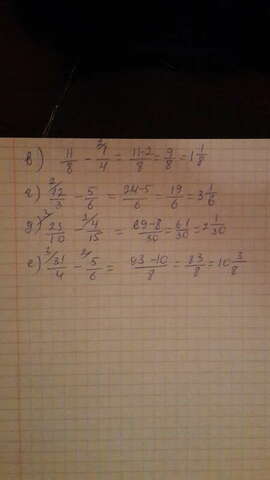 в) 11/8 - ²⁾1/4 = 11-2/8 = 9/8 = 1 1/8
г) ²⁾12/3 - 5/6 = 24-5/6 = 19/6 = 3 1/6
д) ³⁾23/10 - ²⁾4/15 = 69-8/30 = 61/30 = 2 1/30
е) ³⁾31/4 - ²⁾5/6 = 93-10/8 = 83/8 = 10 3/8